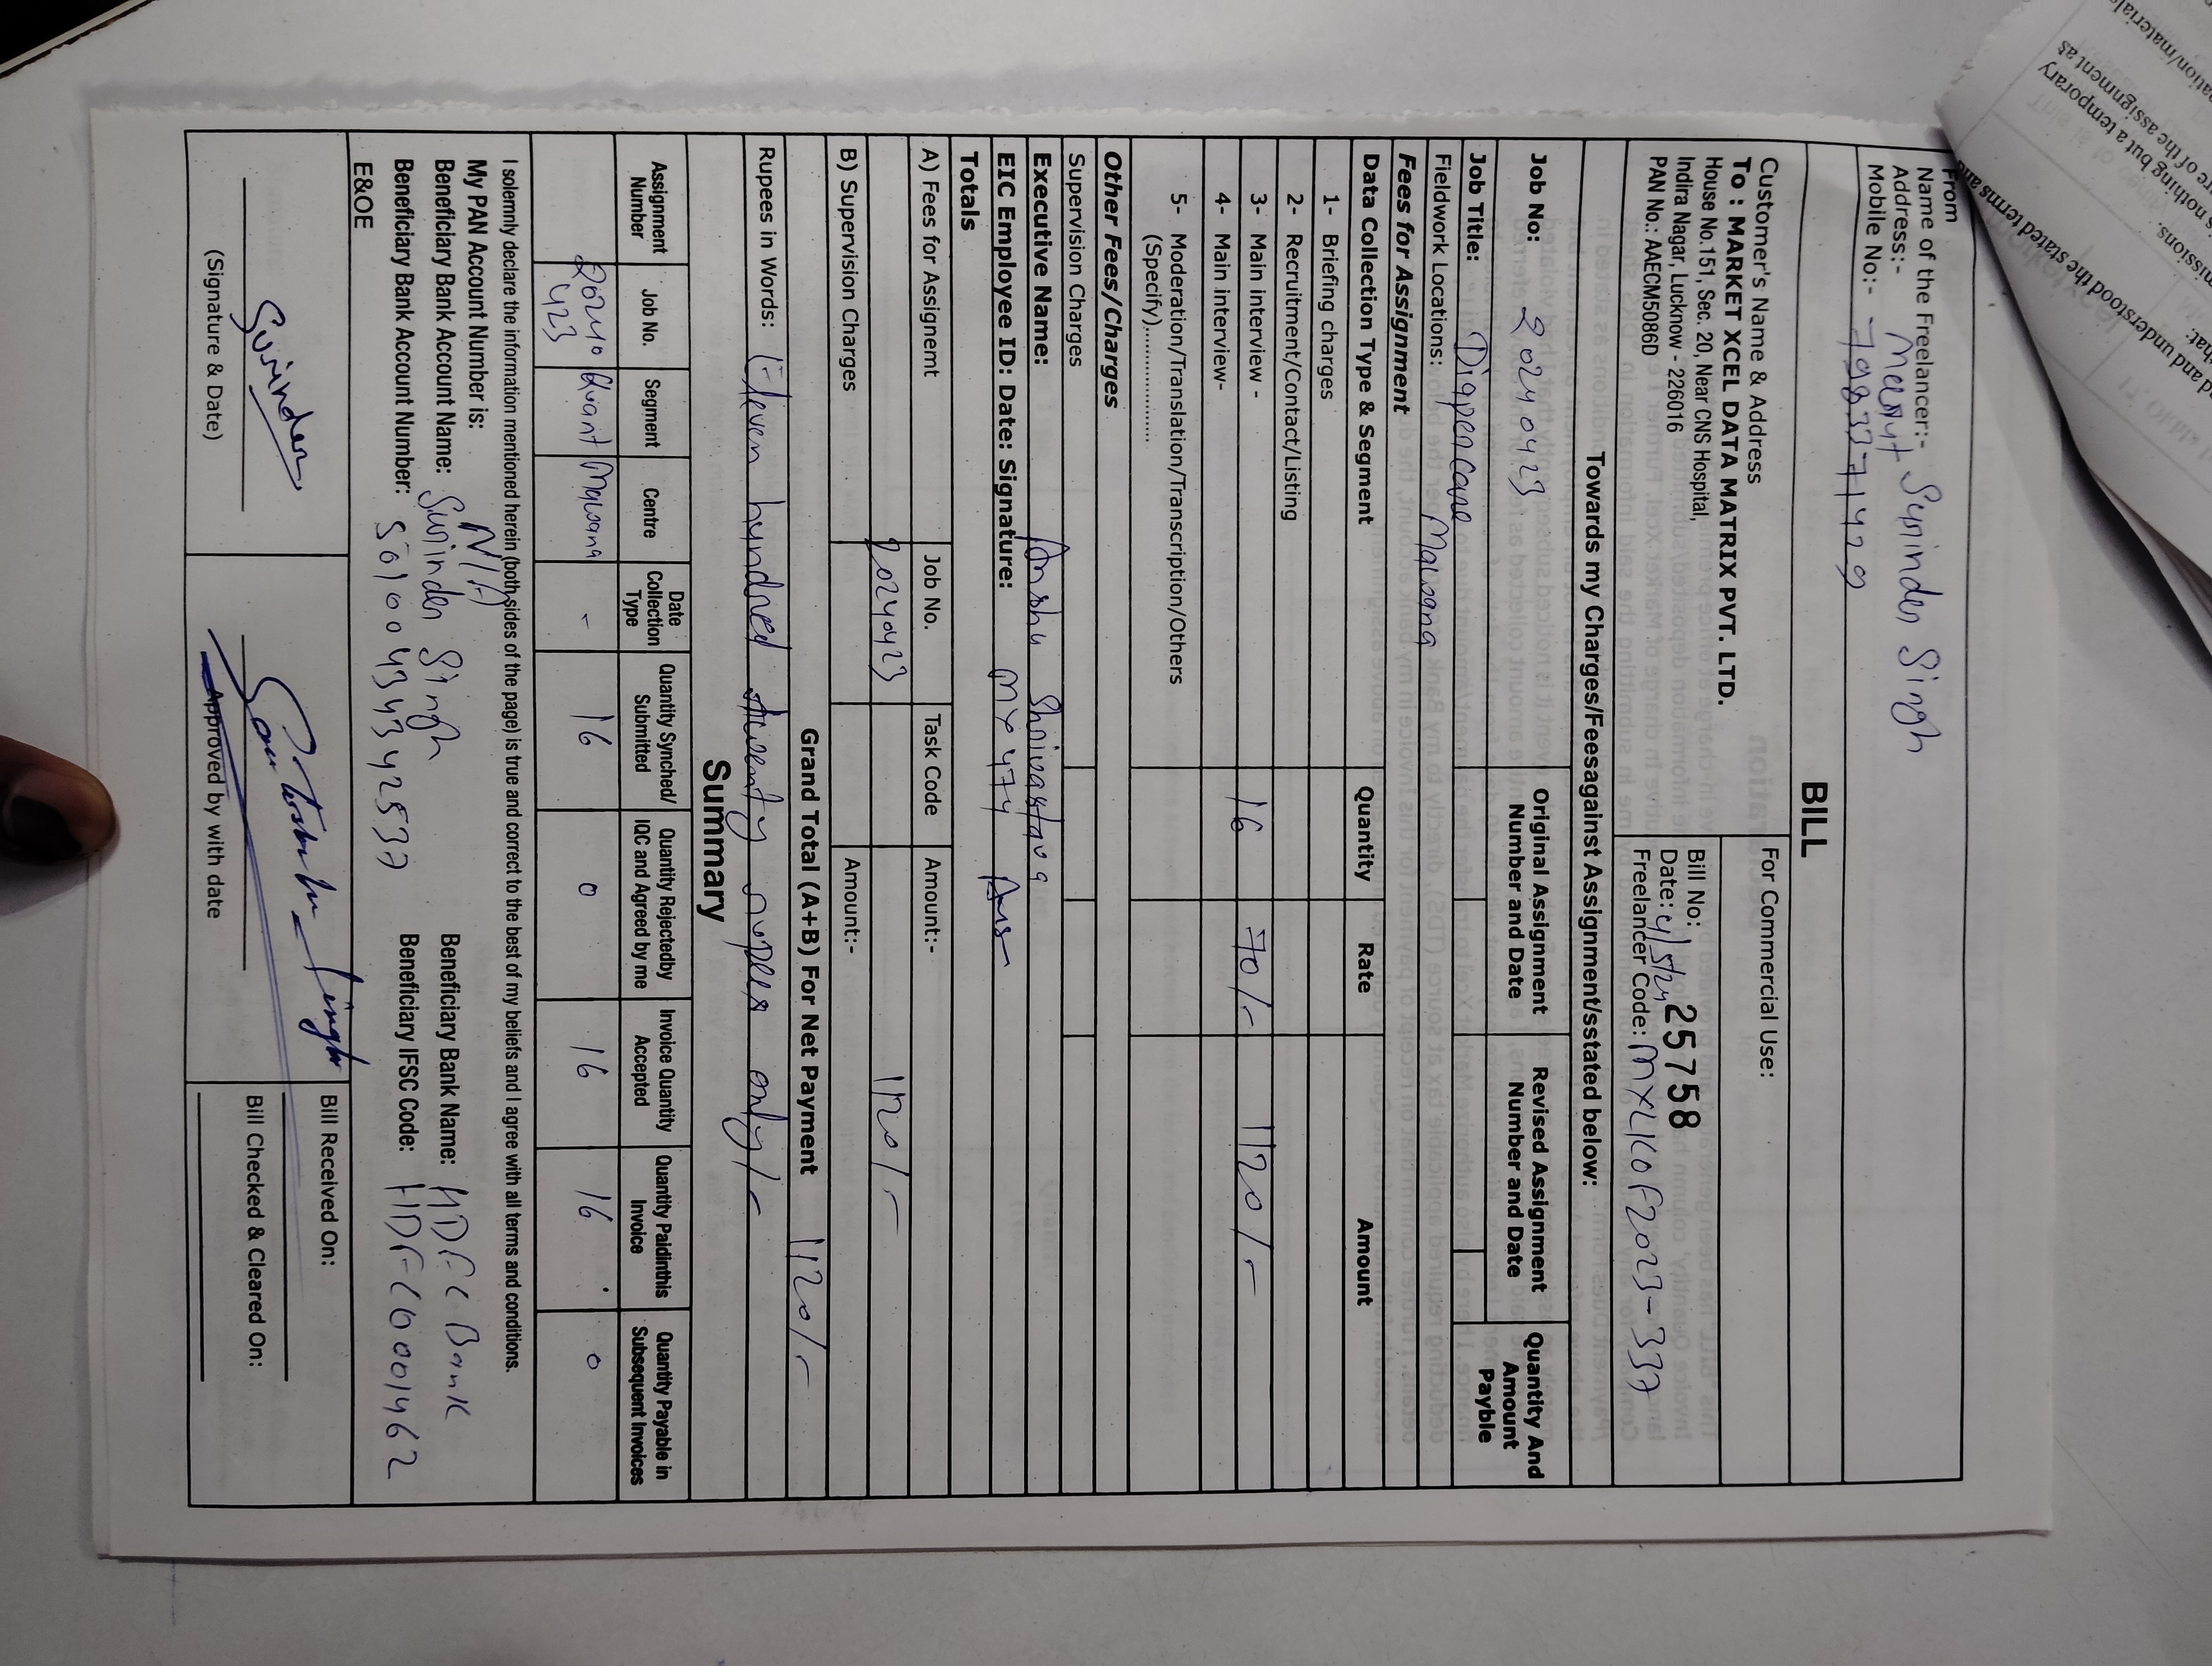 From
Name of the Freelancer:- Surinder Singh
Address:- Meerut
Mobile No:- 7983771429
BILL
Customer's Name & Address
To : MARKET XCEL DATA MATRIX PVT. LTD.
House No.151, Sec. 20, Near CNS Hospital,
Indira Nagar, Lucknow - 226016
PAN No.: AAECM5086D
For Commercial Use:
Bill No: 25758
Date: 4/5/24
Freelancer Code: MXLKOF2023-337
Towards my Charges/Feesagainst Assignment/sstated below:
Job No: 20240423
Original Assignment Number and Date
Revised Assignment Number and Date
Quantity And Amount Payble
Job Title: Diapercare
Fieldwork Locations: Mawana
Fees for Assignment
Data Collection Type & Segment Quantity Rate Amount
1- Briefing charges
2- Recruitment/Contact/Listing
3- Main interview - 16 70/- 1120/-
4- Main interview-
5- Moderation/Translation/Transcription/Others
(Specify)................
Other Fees/Charges
Supervision Charges
Executive Name: Anshu Shrivastava
EIC Employee ID: Date: Signature: MX 474
Totals
A) Fees for Assignemt Job No. Task Code Amount:-
20240423 1120/-
B) Supervision Charges Amount:-
Grand Total (A+B) For Net Payment 1120/-
Rupees in Words: Eleven hundred twenty rupees only/-
Summary
Assignment Number Job No. Segment Centre Date Collection Type Quantity Synched/ Submitted Quantity Rejectedby IQC and Agreed by me Invoice Quantity Accepted Quantity Paidinthis Invoice Quantity Payable in Subsequent Invoices
20240423 Quant Mawana - 16 0 16 16 0
I solemnly declare the information mentioned herein (both sides of the page) is true and correct to the best of my beliefs and I agree with all terms and conditions.
My PAN Account Number is: N/A
Beneficiary Bank Account Name: Surinder Singh Beneficiary Bank Name: HDFC Bank
Beneficiary Bank Account Number: 50100434342537 Beneficiary IFSC Code: HDFC0001462
E&OE
Surinder
(Signature & Date)
Approved by with date
Bill Received On:
Bill Checked & Cleared On: